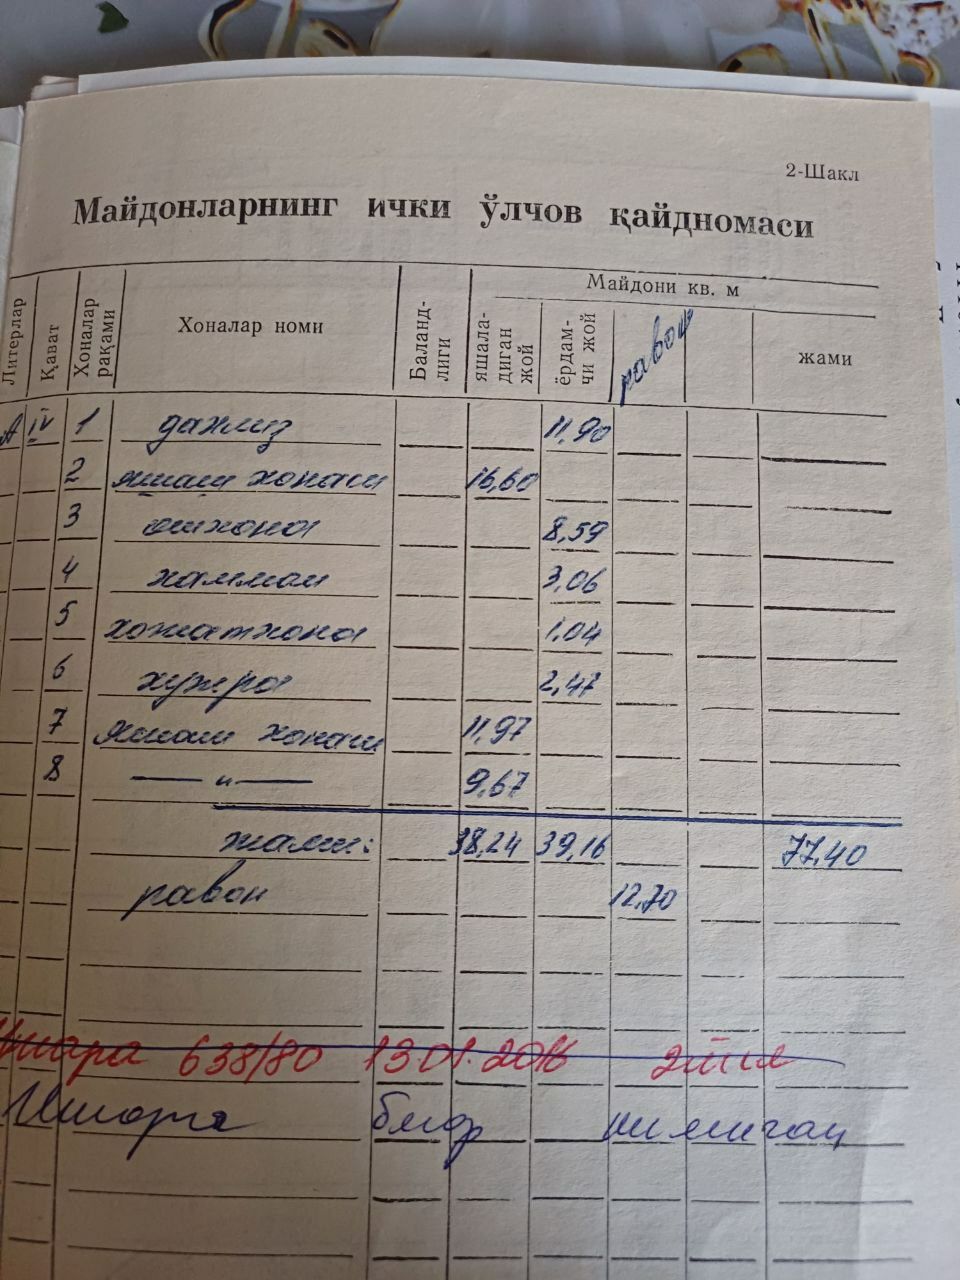 2-Шакл
Майдонларнинг ички ўлчов қайдномаси
Литерлар Қават Хоналар рақами Хоналар номи Баланд-лиги Майдони кв. м
яшала-диган жой ёрдам-чи жой равон жами
А IV 1 дахлиз 11,90
2 яшаш хонаси 16,60
3 ошхона 8,59
4 хаммом 3,06
5 хожатхона 1,04
6 хужра 2,47
7 яшаш хонаси 11,97
8 — „ — 9,67
жами: 38,24 39,16 77,40
равон 12,70
638/80 13.01.2016